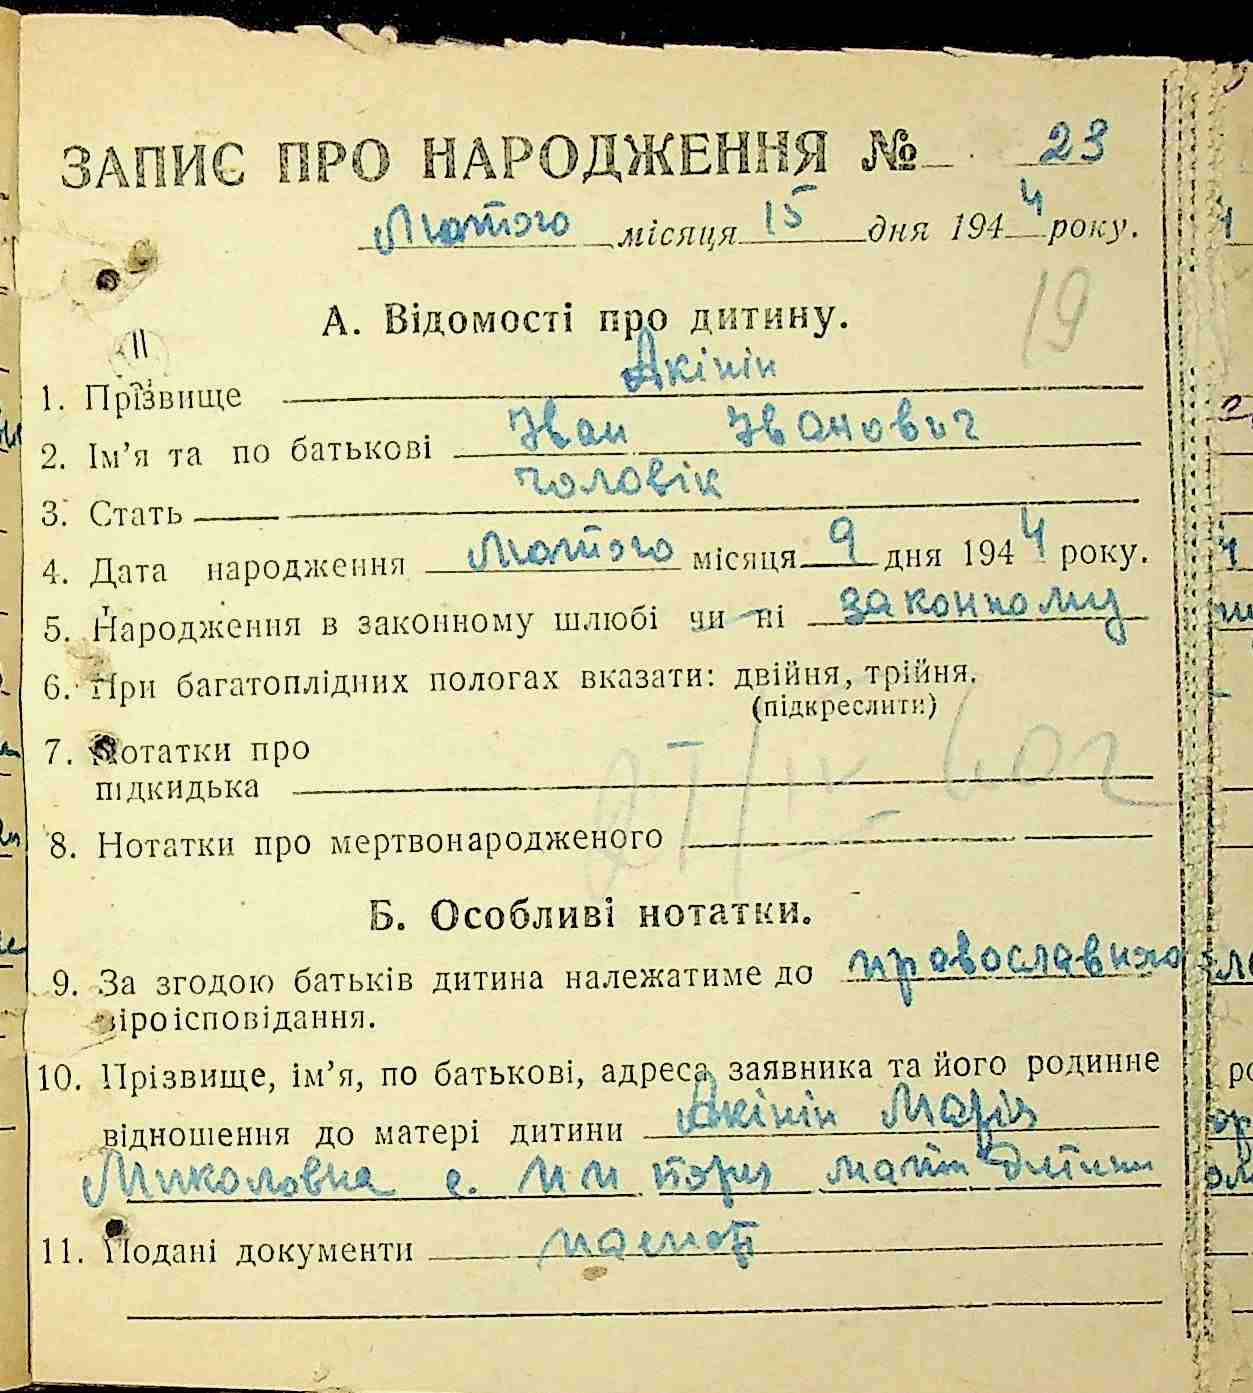 ЗАПИС ПРО НАРОДЖЕННЯ № 23
Лютого місяця 15 дня 1944 року.
19
А. Відомості про дитину.
II
1. Прізвище Акінін
2. Ім’я та по батькові Іван Іванович
3. Стать чоловік
4. Дата народження Лютого місяця 9 дня 1944 року.
5. Народження в законному шлюбі чи ні законному
6. При багатоплідних пологах вказати: двійня, трійня.
(підкреслити)
7. Нотатки про
підкидька
8. Нотатки про мертвонародженого
Б. Особливі нотатки.
9. За згодою батьків дитина належатиме до православного
віроісповідання.
10. Прізвище, ім’я, по батькові, адреса заявника та його родинне
відношення до матері дитини Акінін Марія
Миколовна с. мати дитини
11. Подані документи паспорт